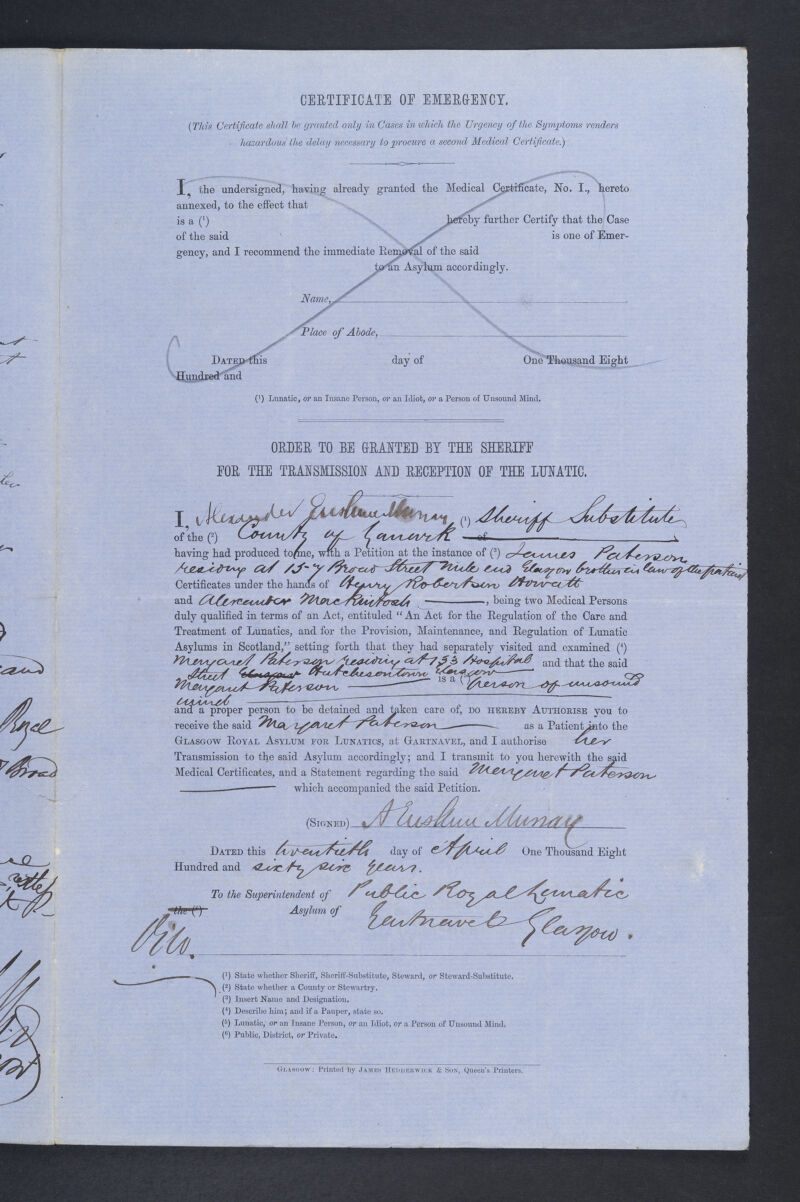 CERTIFICATE OF EMERGENCY.
(This Certificate shall be granted only in Cases in which the Urgency of the Symptoms renders
hazardous the delay necessary to procure a second Medical Certificate.)
I, the undersigned, having already granted the Medical Certificate, No. I., hereto
annexed, to the effect that
is a (¹) hereby further Certify that the Case
of the said is one of Emer-
gency, and I recommend the immediate Removal of the said
to an Asylum accordingly.
Name,
Place of Abode,
DATED this day of One Thousand Eight
Hundred and
(¹) Lunatic, or an Insane Person, or an Idiot, or a Person of Unsound Mind.
ORDER TO BE GRANTED BY THE SHERIFF
FOR THE TRANSMISSION AND RECEPTION OF THE LUNATIC.
I, Alexander Erskine Murray (¹) Sheriff Substitute
of the (²) County of Lanark of
having had produced to me, with a Petition at the instance of (³) James Paterson
residing at 157 Broad Street Mile end Glasgow brother in law of the patient
Certificates under the hands of Henry Robertson Howatt
and Alexander Mackintosh, being two Medical Persons
duly qualified in terms of an Act, entituled "An Act for the Regulation of the Care and
Treatment of Lunatics, and for the Provision, Maintenance, and Regulation of Lunatic
Asylums in Scotland," setting forth that they had separately visited and examined (⁴)
Margaret Paterson residing at 133 Hospital and that the said
Street Glasgow Hutchesontown Glasgow
Margaret Paterson is a (⁵) person of unsound
mind
and a proper person to be detained and taken care of, DO HEREBY AUTHORISE you to
receive the said Margaret Paterson as a Patient into the
GLASGOW ROYAL ASYLUM FOR LUNATICS, at GARTNAVEL, and I authorise her
Transmission to the said Asylum accordingly; and I transmit to you herewith the said
Medical Certificates, and a Statement regarding the said Margaret Paterson
which accompanied the said Petition.
(SIGNED) A Erskine Murray
DATED this twentieth day of April One Thousand Eight
Hundred and sixty six years.
To the Superintendent of Public Royal Lunatic
the (⁶) Asylum of Gartnavel Glasgow.
(¹) State whether Sheriff, Sheriff-Substitute, Steward, or Steward-Substitute.
(²) State whether a County or Stewartry.
(³) Insert Name and Designation.
(⁴) Describe him; and if a Pauper, state so.
(⁵) Lunatic, or an Insane Person, or an Idiot, or a Person of Unsound Mind.
(⁶) Public, District, or Private.
GLASGOW: Printed by JAMES HEDDERWICK & SON, Queen's Printers.